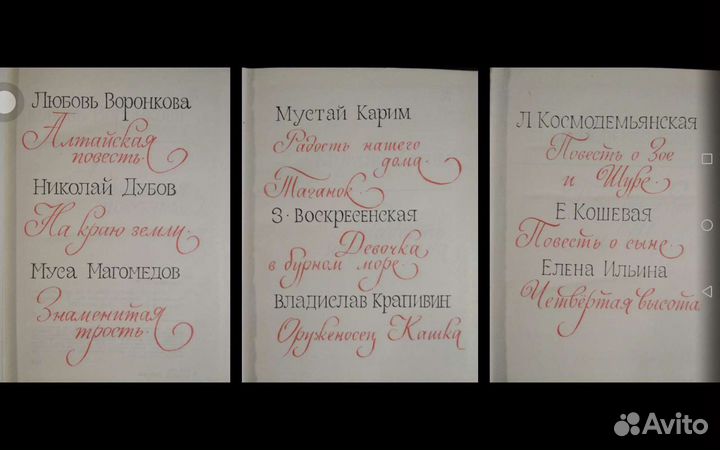 Любовь Воронкова
Алтайская
повесть.
Николай Дубов
На краю земли.
Муса Магомедов
Знаменитая
трость.
Мустай Карим
Радость нашего
дома.
Таганок.
З. Воскресенская
Девочка
в бурном море.
Владислав Крапивин
Оруженосец Кашка
Л Космодемьянская
Повесть о Зое
и Шуре.
Е. Кошевая
Повесть о сыне.
Елена Ильина
Четвертая высота
Avito